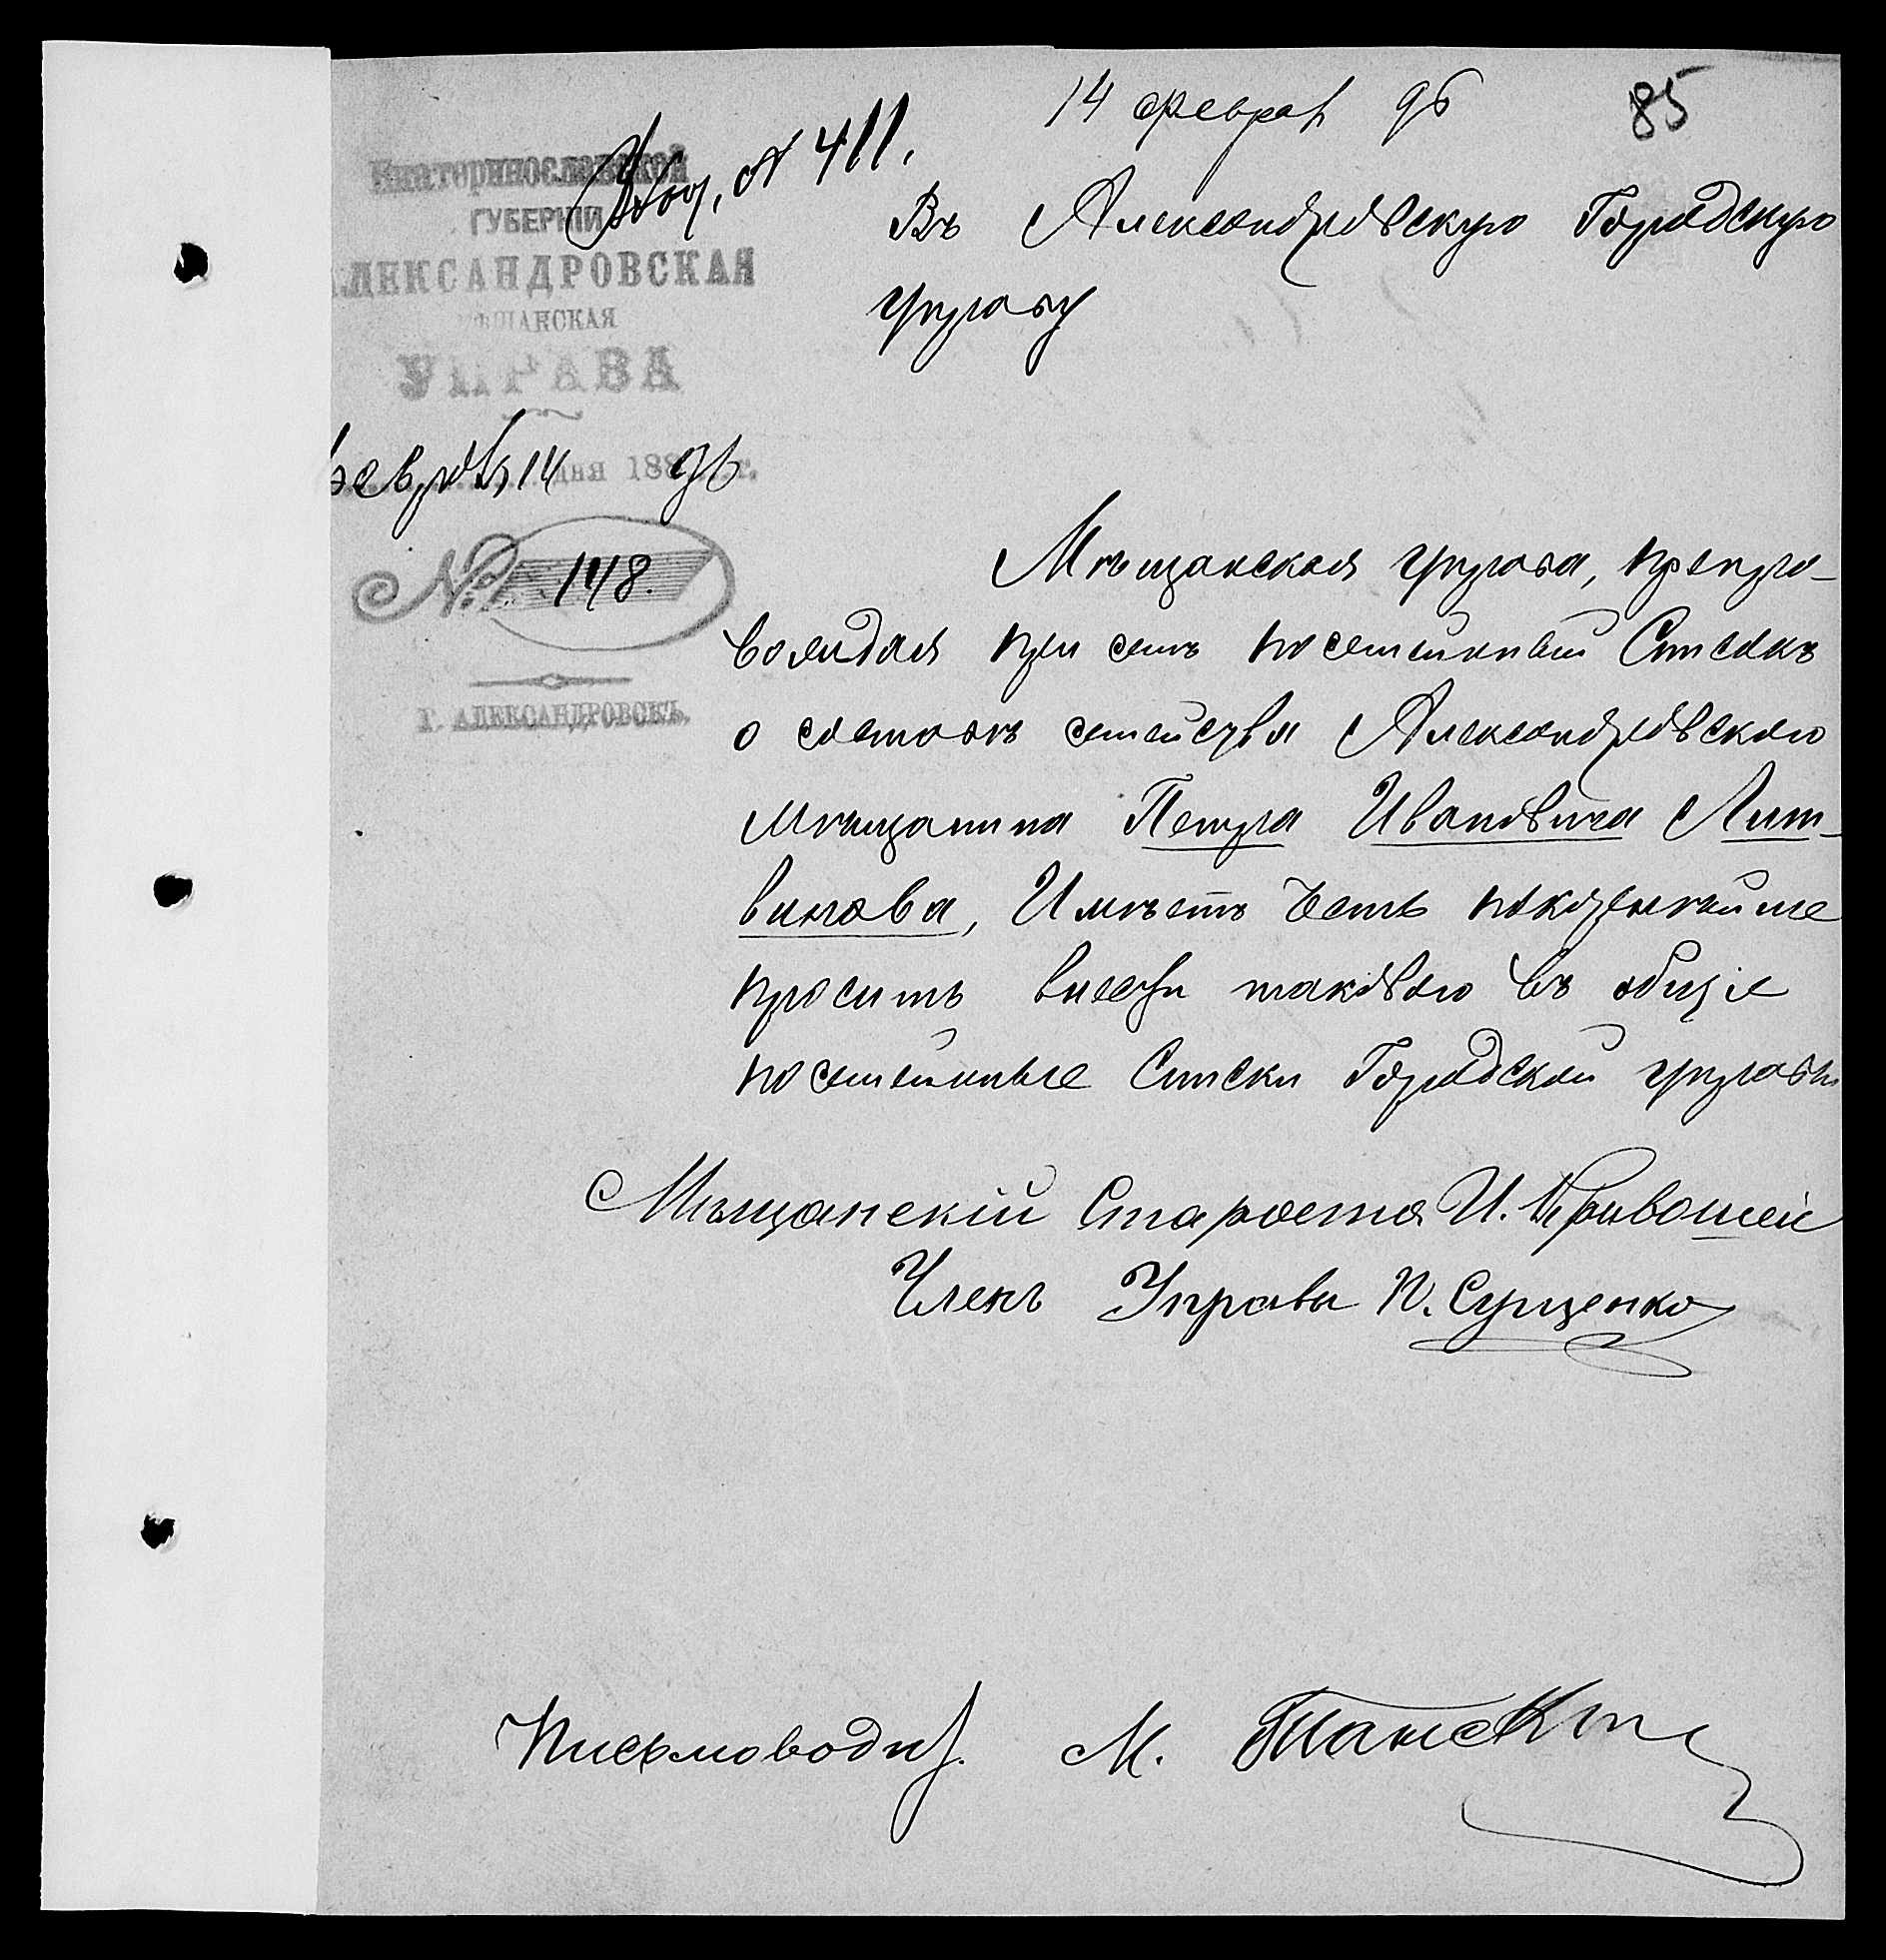 14 феврал 96
85
Вход. № 411.
Екатеринославской
ГУБЕРНІИ
АЛЕКСАНДРОВСКАЯ
МѢЩАНСКАЯ
УПРАВА
Феврал 14 дня 188 96 г.
№ 148.
Г. АЛЕКСАНДРОВСКЪ.
Въ Александровскую Городскую
управу
Мѣщанская управа, препро-
вождая при семъ посемейный Списокъ
о составѣ семейства Александровскаго
мѣщанина Петра Ивановича Лит-
винова, Имѣетъ Честь покорнѣйше
просить внести таковаго въ общіе
посемейные Списки Городской управы
Мѣщанскій Староста И. Кривошей
Членъ Управы П. Сущенко
Письмоводит. М.